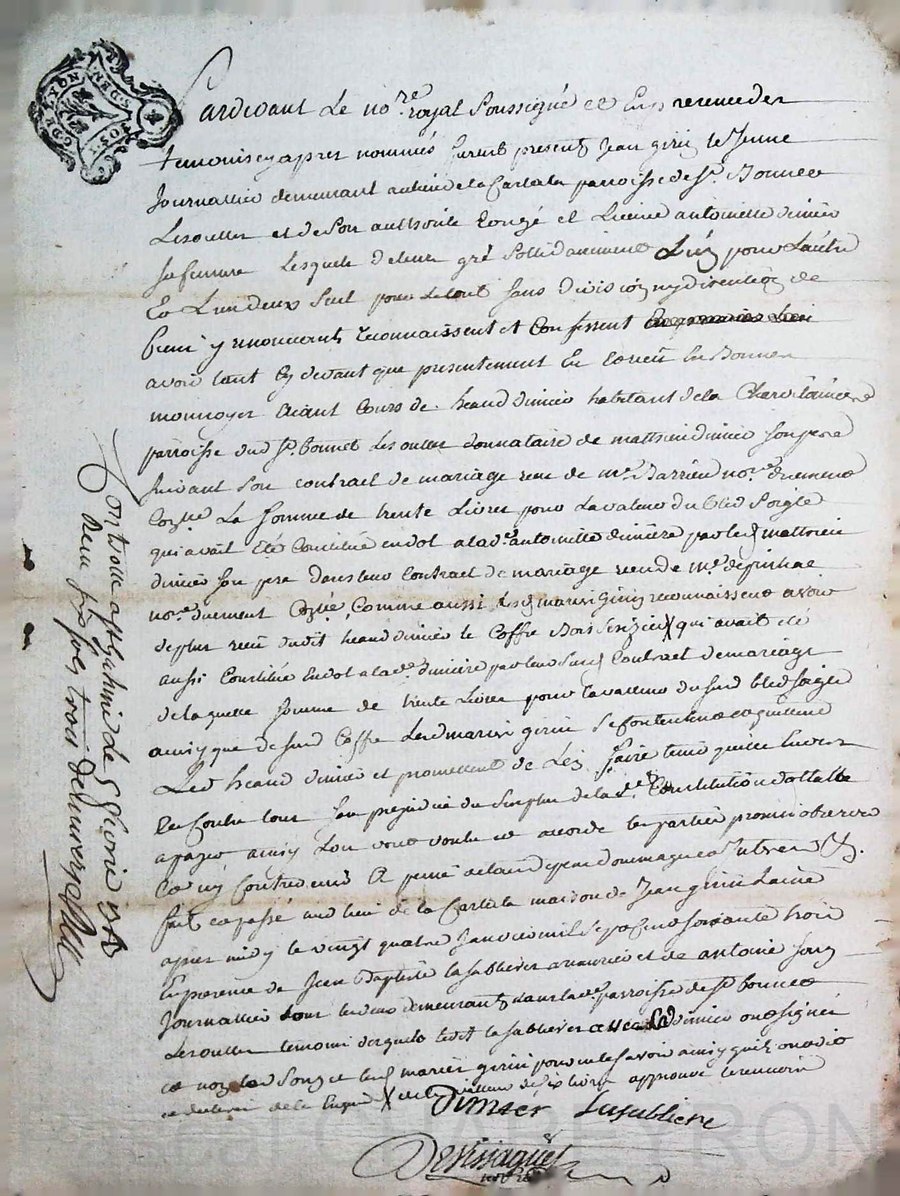 DE LYON
4
Pardevant Le no.re royal Soussigné et En presence des
temoins cy apres nommés furent present Jean girin le Jeune
Journallier demeurant au lieu de la Carlata parroisse de St. Bonnet
Lesoulles et de son authorité Congé et Licence antoinette dimier
sa femme Lesquels de leur gré sollidairement L'un pour L'autre
Et L'un deux seul pour le tout sans division ny discution de
biens y renoncants reconnaissent et Confessent
avoir tant cy devant que presentement Eu et receu En Bonnes
monnoyes aiant Cours de heand dimier habitant de la
parroisse dud St. Bonnet Les oulles donnataire de mathieu dimier son pere
suivant son contrat de mariage receu de me. Barrieu no.re duement
La somme de trente Livres pour la valeur du bled Soigle
qui avait Eté Constitué en dot a lad.e antoinette dimière par led mathieu
dimier son pere dans leur Contract de mariage receu de me. despinhac
no.re duement Comme aussi lesd mariés Girin reconnaissent avoir
de plus receu dudit heand dimier le Coffre Bois Serizier X qui avait eté
aussi Constitué en dot a lad.e dimière par leur susd Contract de mariage
de laquelle somme de trente Livres pour la valleur du susd bled soigle
ainsy que du susd Coffre Lesd mariés girin se Contentent et quittent
Led heand dimier et promettent de L'en faire tenir quitte Envers
Et Contre tous sans prejudice du surplus de lad.e Constitution dottalle
a payer ainsy L'ont voulu et accordé les parties promis observer
Et n'y Contrevenir A peine de tous depens dommages et
fait et passé aud lieu de la Carlata maison de Jean girin Lainé
apres midy le vingt quatre Janvier mil sept cens soixante trois
En presence de Jean Baptiste lasabliere et de antoine Souq
Journallier tous les deux demeurants dans lad.e parroisse de St. Bonnet
Lesoulles temoins desquels ledit lasabliere avec led dimier ont signé
ce non led Souq et lesd mariés girin pour ne le savoir ainsy quils ont dit
de le Enquis X de la valleur de six Livres approuvé le renvoi
Dimier Lasabliere
Devissaguet
no.re
Controllé à St germain Le
Receu sols trois deniers